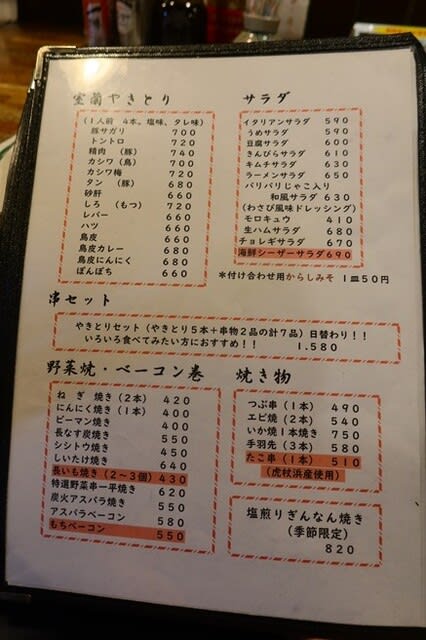 室蘭やきとり
(1人前 4本、塩味、タレ味)
豚サガリ 700
トントロ 720
精肉 (豚) 740
カシワ (鳥) 700
カシワ梅 720
タン (豚) 680
砂肝 660
しろ (もつ) 720
レバー 660
ハツ 660
鳥皮 660
鳥皮カレー 680
鳥皮にんにく 680
ぼんぼち 660
サラダ
イタリアンサラダ 590
うめサラダ 590
豆腐サラダ 600
きんぴらサラダ 610
キムチサラダ 630
ラーメンサラダ 650
バリバリじゃこ入り
和風サラダ 630
(わさび風味ドレッシング)
モロキュウ 410
生ハムサラダ 680
チョレギサラダ 670
海鮮シーザーサラダ 690
*付け合わせ用からしみそ 1皿50円
串セット
やきとりセット (やきとり5本+串物2品の計7品) 日替わり!!
いろいろ食べてみたい方におすすめ!! 1.580
野菜焼・ベーコン巻
ねぎ 焼き (2本) 420
にんにく焼き (1本) 400
ピーマン焼き 400
長なす炭焼き 550
シシトウ焼き 450
しいたけ焼き 640
長いも焼き (2~3個) 430
特選野菜串一平焼き 620
炭火アスパラ焼き 550
アスパラベーコン 580
もちベーコン 550
焼き物
つぶ串 (1本) 490
エビ焼 (2本) 540
いか焼1本焼き 750
手羽先 (3本) 580
たこ串 (1本) 510
(虎杖浜産使用)
塩煎りぎんなん焼き
(季節限定)
820